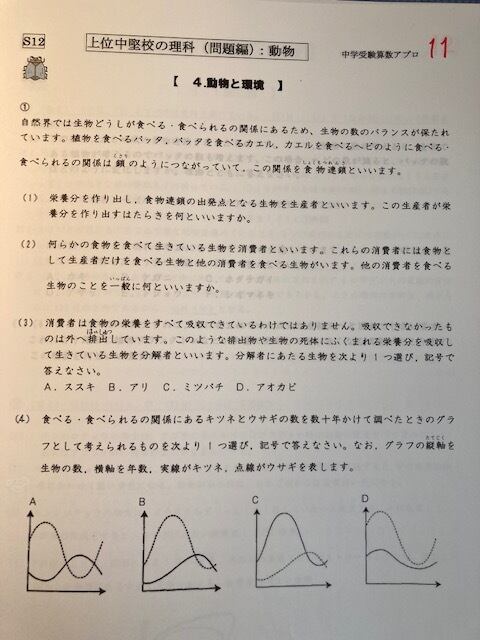 S12
上位中堅校の理科（問題編）：動物
中学受験算数アプロ
11
【 4.動物と環境 】
①
自然界では生物どうしが食べる・食べられるの関係にあるため、生物の数のバランスが保たれ
ています。植物を食べるバッタ，バッタを食べるカエル，カエルを食べるヘビのように食べる・
食べられるの関係は鎖のようにつながっていて，この関係を食物連鎖といいます。
（1） 栄養分を作り出し，食物連鎖の出発点となる生物を生産者といいます。この生産者が栄
養分を作り出すはたらきを何といいますか。
（2） 何らかの食物を食べて生きている生物を消費者といいます。これらの消費者には食物と
して生産者だけを食べる生物と他の消費者を食べる生物がいます。他の消費者を食べる
生物のことを一般に何といいますか。
（3） 消費者は食物の栄養をすべて吸収できているわけではありません。吸収できなかったも
のは外へ排出しています。このような排出物や生物の死体にふくまれる栄養分を吸収
して生きている生物を分解者といいます。分解者にあたる生物を次より1つ選び，記号で
答えなさい。
A．ススキ B．アリ C．ミツバチ D．アオカビ
（4） 食べる・食べられるの関係にあるキツネとウサギの数を数十年かけて調べたときのグラ
フとして考えられるものを次より1つ選び，記号で答えなさい。なお，グラフの縦軸を
生物の数，横軸を年数，実線がキツネ，点線がウサギを表します。
A B C D